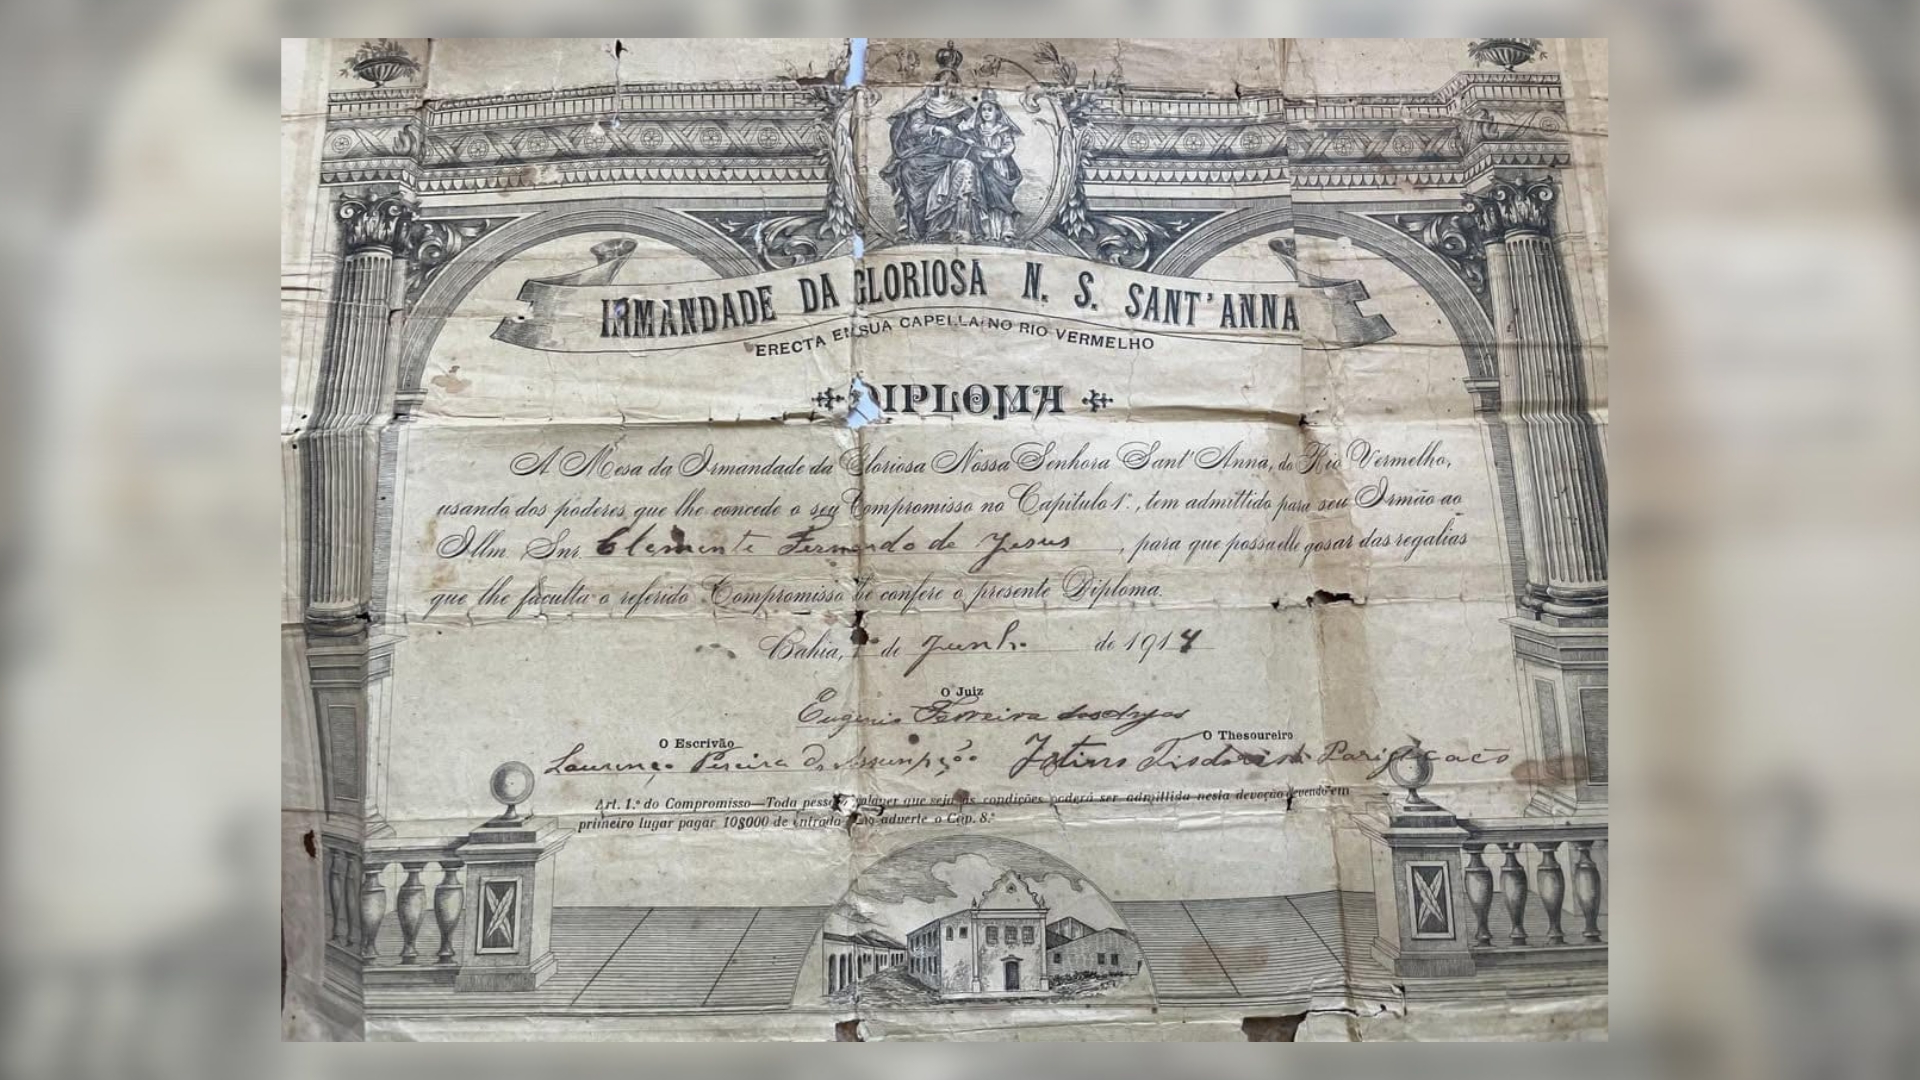 IRMANDADE DA GLORIOSA N. S. SANT'ANNA
ERECTA EM SUA CAPELLA NO RIO VERMELHO
DIPLOMA
A Mesa da Irmandade da Gloriosa Nossa Senhora Sant'Anna, do Rio Vermelho,
usando dos poderes que lhe concede o seu Compromisso no Capitulo 1º, tem admittido para seu Irmão ao
Illm. Snr. Clemente Fernando de Jesus, para que possa elle gosar das regalias
que lhe faculta o referido Compromisso se confere o presente Diploma.
Bahia, 1º de Junho de 1914
O Juiz
Eugenio Ferreira dos Anjos
O Escrivão
O Thesoureiro
Lourenço Pereira da Assumpção
Art. 1.º do Compromisso—Toda pessoa qualquer que seja as condições poderá ser admittida nesta devoção devendo em
primeiro lugar pagar 10$000 de entrada adverte o Cap. 8.º